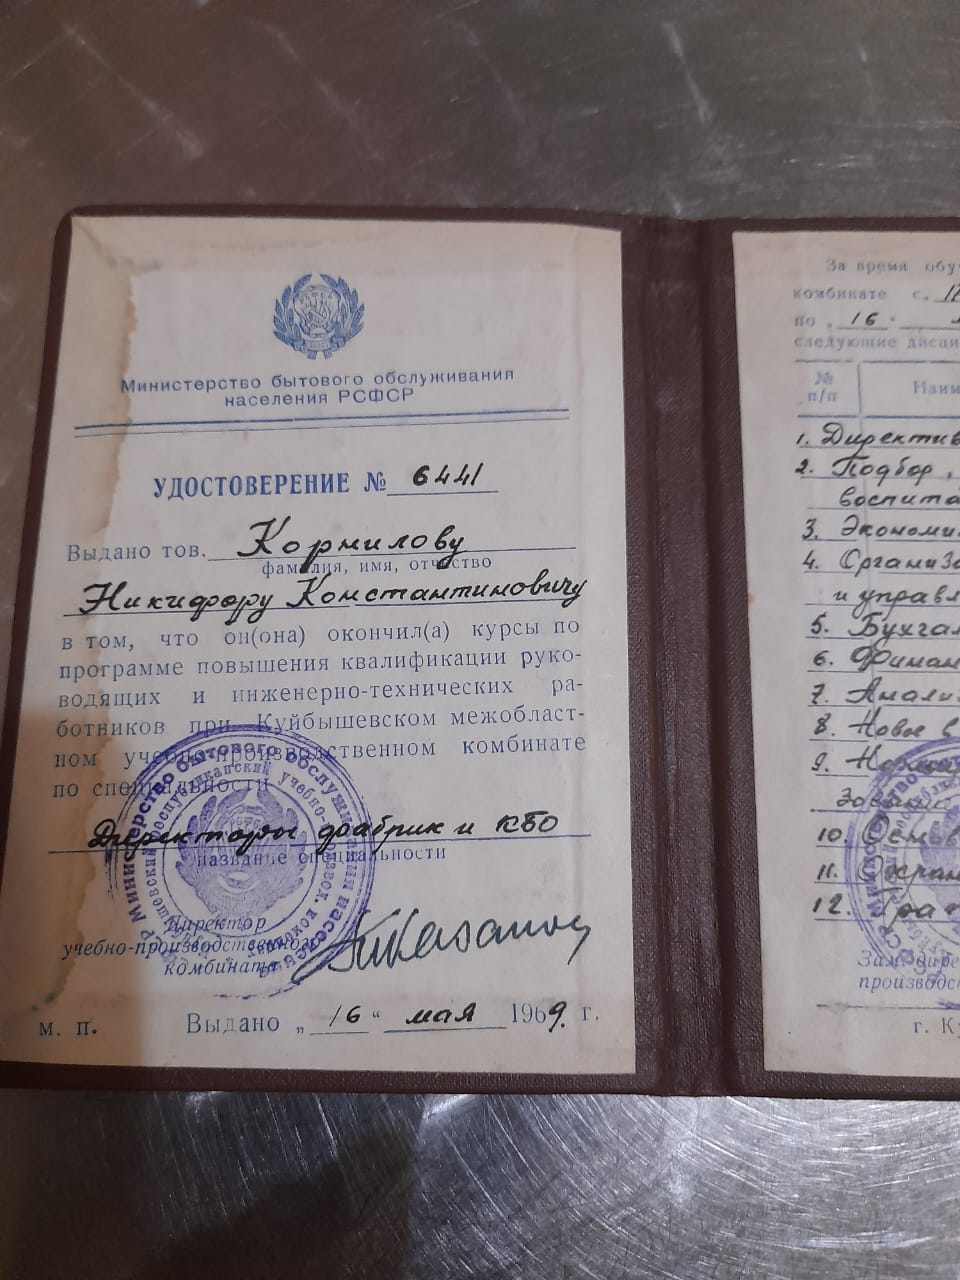 Министерство бытового обслуживания
населения РСФСР
УДОСТОВЕРЕНИЕ № 6441
Выдано тов. Корнилову
фамилия, имя, отчество
Никифору Константиновичу
в том, что он(она) окончил(а) курсы по
программе повышения квалификации руко-
водящих и инженерно-технических ра-
ботников при Куйбышевском межобласт-
ном учебно-производственном комбинате
по специальности
Директоры фабрик и КБО
название специальности
Директор
учебно-производственного
комбината
М. П. Выдано „16“ мая 1969 г.
За время обу
комбинате с.
по 16
следующие дисци
№
п/п
Наим
1. Директив
2. Подбор,
воспита
3. Экономи
4. Организа
и управл
5. Бухгал
6. Финан
7. Анализ
8. Новое в
9.
10. Основ
11. Охран
12.
Зам. дире
производс
г. К
Министерство бытового обслуживания населения